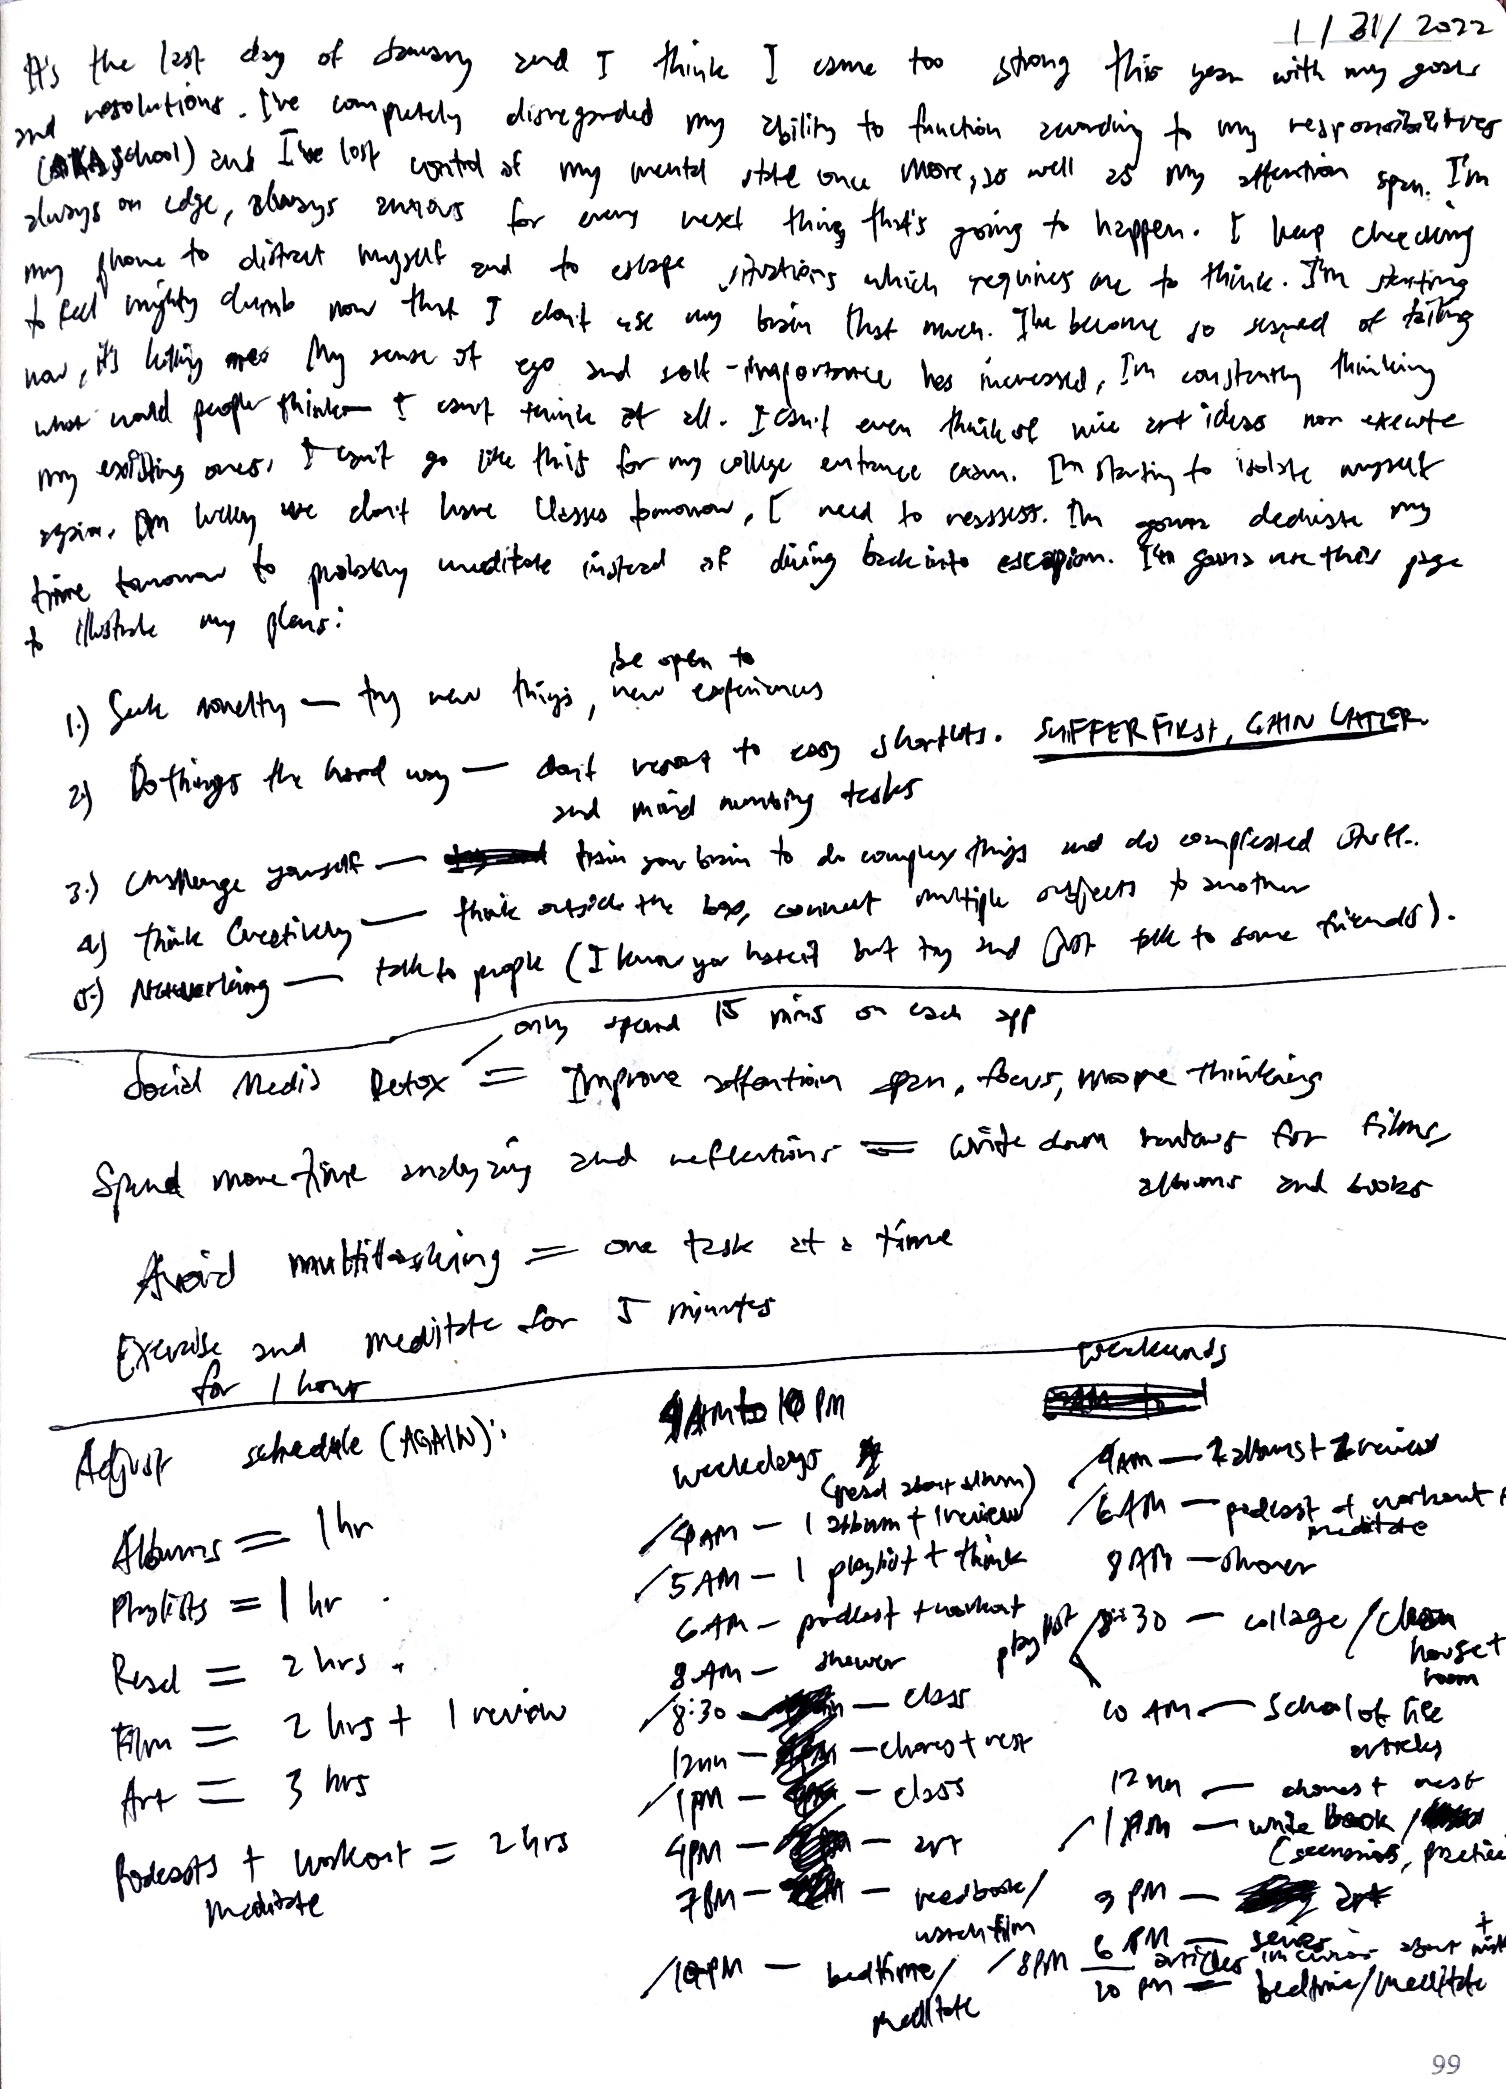 1/31/2022
It's the last day of January and I think I came too strong this year with my goals
and resolutions. I've completely disregarded my ability to function according to my responsibilities
(AKA school) and I've lost control of my mental state once more, as well as my attention span. I'm
always on edge, always anxious for every next thing that's going to happen. I keep checking
my phone to distract myself and to escape situations which requires me to think. I'm starting
to feel mighty dumb now that I don't use my brain that much. I've become so scared of failing
now, it's killing me. My sense of ego and self-importance has increased, I'm constantly thinking
what would people think I can't think at all. I can't even think of nice art ideas nor execute
my existing ones. I can't go like this for my college entrance exam. I'm starting to isolate myself
again. I'm lucky we don't have classes tomorrow, I need to reassess. I'm gonna dedicate my
time tomorrow to probably meditate instead of diving back into escapism. I'm gonna use this page
to illustrate my plans:
1.) Seek novelty — try new things, be open to
new experiences
2.) Do things the hard way — don't resort to easy shortcuts. SUFFER FIRST, GAIN LATER
and mind numbing tasks
3.) Challenge yourself — train your brain to do complex things and do complicated stuff.
4.) Think Creatively — think outside the box, connect multiple subjects to another
5.) Networking — talk to people (I know you hate it but try and just talk to some friends).
only spend 15 mins on each app
Social Media Detox = Improve attention span, focus, more thinking
Spend more time analyzing and reflections = write down reviews for films,
albums and books
Avoid multitasking = one task at a time
Exercise and meditate for 5 minutes
for 1 hour
Adjust schedule (AGAIN):
Albums = 1 hr
Playlists = 1 hr
Read = 2 hrs
Film = 2 hrs + 1 review
Art = 3 hrs
Podcasts + workout = 2 hrs
meditate
4AM to 10 PM
weekdays
(read about album)
4AM — 1 album + 1 review
5 AM — 1 playlist + think
6 AM — podcast + workout
8 AM — shower
8:30 — class
12nn — chores + rest
1 PM — class
4PM — art
7PM — read book/
watch film
10PM — bedtime/
meditate
weekends
4AM — 2 albums + 2 review
6 AM — podcast + workout +
meditate
8 AM — shower
playlist
8:30 — collage / clean
house +
room
10 AM — School of life
articles
12 nn — chores + rest
1 PM — write book /
(scenarios, practice
3 PM — art
6 PM — series
8PM articles im curious about +
10 PM — bedtime/meditate
99